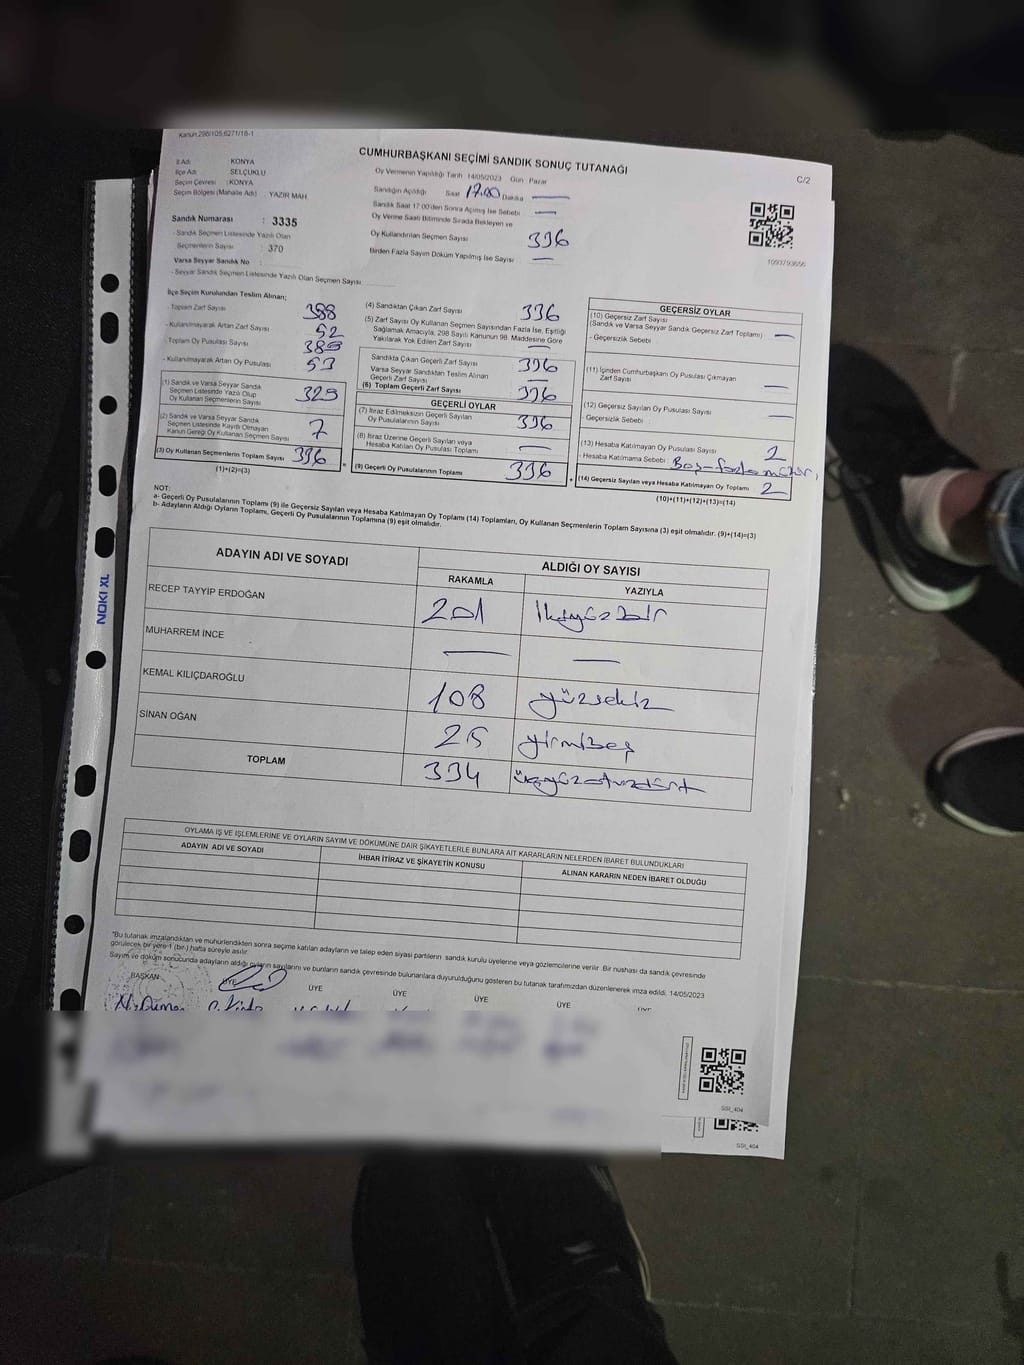 Kanun:298/105,6271/18-1
CUMHURBAŞKANI SEÇİMİ SANDIK SONUÇ TUTANAĞI
C/2
İl Adı : KONYA
İlçe Adı : SELÇUKLU
Seçim Çevresi : KONYA
Seçim Bölgesi (Mahalle Adı) : YAZIR MAH
Sandık Numarası : 3335
- Sandık Seçmen Listesinde Yazılı Olan
Seçmenlerin Sayısı : 370
Varsa Seyyar Sandık No
- Seyyar Sandık Seçmen Listesinde Yazılı Olan Seçmen Sayısı
Oy Vermenin Yapıldığı Tarih : 14/05/2023 Gün : Pazar
Sandığın Açıldığı Saat 17.00 Dakika —
Sandık Saat 17:00'den Sonra Açılmış İse Sebebi —
Oy Verme Saati Bitiminde Sırada Bekleyen ve
Oy Kullandırılan Seçmen Sayısı 336
Birden Fazla Sayım Döküm Yapılmış İse Sayısı : —
İlçe Seçim Kurulundan Teslim Alınan;
- Toplam Zarf Sayısı 388
- Kullanılmayarak Artan Zarf Sayısı 52
- Toplam Oy Pusulası Sayısı 389
- Kullanılmayarak Artan Oy Pusulası 53
(1) Sandık ve Varsa Seyyar Sandık
Seçmen Listesinde Yazılı Olup
Oy Kullanan Seçmenlerin Sayısı 329
(2) Sandık ve Varsa Seyyar Sandık
Seçmen Listesinde Kayıtlı Olmayan
Kanun Gereği Oy Kullanan Seçmen Sayısı 7
(3) Oy Kullanan Seçmenlerin Toplam Sayısı 336
(1)+(2)=(3)
(4) Sandıktan Çıkan Zarf Sayısı 336
(5) Zarf Sayısı Oy Kullanan Seçmen Sayısından Fazla İse, Eşitliği
Sağlamak Amacıyla, 298 Sayılı Kanunun 98. Maddesine Göre
Yakılarak Yok Edilen Zarf Sayısı —
Sandıkta Çıkan Geçerli Zarf Sayısı 336
Varsa Seyyar Sandıktan Teslim Alınan
Geçerli Zarf Sayısı —
(6) Toplam Geçerli Zarf Sayısı 336
GEÇERLİ OYLAR
(7) İtiraz Edilmeksizin Geçerli Sayılan
Oy Pusulalarının Sayısı 336
(8) İtiraz Üzerine Geçerli Sayılan veya
Hesaba Katılan Oy Pusulası Toplamı —
(9) Geçerli Oy Pusulalarının Toplamı 336
1093793656
GEÇERSİZ OYLAR
(10) Geçersiz Zarf Sayısı
(Sandık ve Varsa Seyyar Sandık Geçersiz Zarf Toplamı) —
- Geçersizlik Sebebi :
(11) İçinden Cumhurbaşkanı Oy Pusulası Çıkmayan
Zarf Sayısı —
(12) Geçersiz Sayılan Oy Pusulası Sayısı —
- Geçersizlik Sebebi :
(13) Hesaba Katılmayan Oy Pusulası Sayısı 2
- Hesaba Katılmama Sebebi : Boş-fazla mühür
(14) Geçersiz Sayılan veya Hesaba Katılmayan Oy Toplamı 2
(10)+(11)+(12)+(13)=(14)
NOT:
a- Geçerli Oy Pusulalarının Toplamı (9) ile Geçersiz Sayılan veya Hesaba Katılmayan Oy Toplamı (14) Toplamları, Oy Kullanan Seçmenlerin Toplam Sayısına (3) eşit olmalıdır. (9)+(14)=(3)
b- Adayların Aldığı Oyların Toplamı, Geçerli Oy Pusulalarının Toplamına (9) eşit olmalıdır.
ADAYIN ADI VE SOYADI ALDIĞI OY SAYISI
RAKAMLA YAZIYLA
RECEP TAYYİP ERDOĞAN 201 ikiyüzbir
MUHARREM İNCE — —
KEMAL KILIÇDAROĞLU 108 yüzsekiz
SİNAN OĞAN 25 yirmibeş
TOPLAM 334 üçyüzotuzdört
OYLAMA İŞ VE İŞLEMLERİNE VE OYLARIN SAYIM VE DÖKÜMÜNE DAİR ŞİKAYETLERLE BUNLARA AİT KARARLARIN NELERDEN İBARET BULUNDUKLARI
ADAYIN ADI VE SOYADI İHBAR İTİRAZ VE ŞİKAYETİN KONUSU ALINAN KARARIN NEDEN İBARET OLDUĞU
"Bu tutanak imzalandıktan ve mühürlendikten sonra seçime katılan adayların ve talep eden siyasi partilerin sandık kurulu üyelerine veya gözlemcilerine verilir. Bir nüshası da sandık çevresinde
görülecek bir yere 1 (bir) hafta süreyle asılır.
Sayım ve döküm sonucunda adayların aldığı oyların sayılarını ve bunların sandık çevresinde bulunanlara duyurulduğunu gösteren bu tutanak tarafımızdan düzenlenerek imza edildi. 14/05/2023
BAŞKAN ÜYE ÜYE ÜYE ÜYE ÜYE ÜYE
SSI_404
SSI_404
NOKI XL